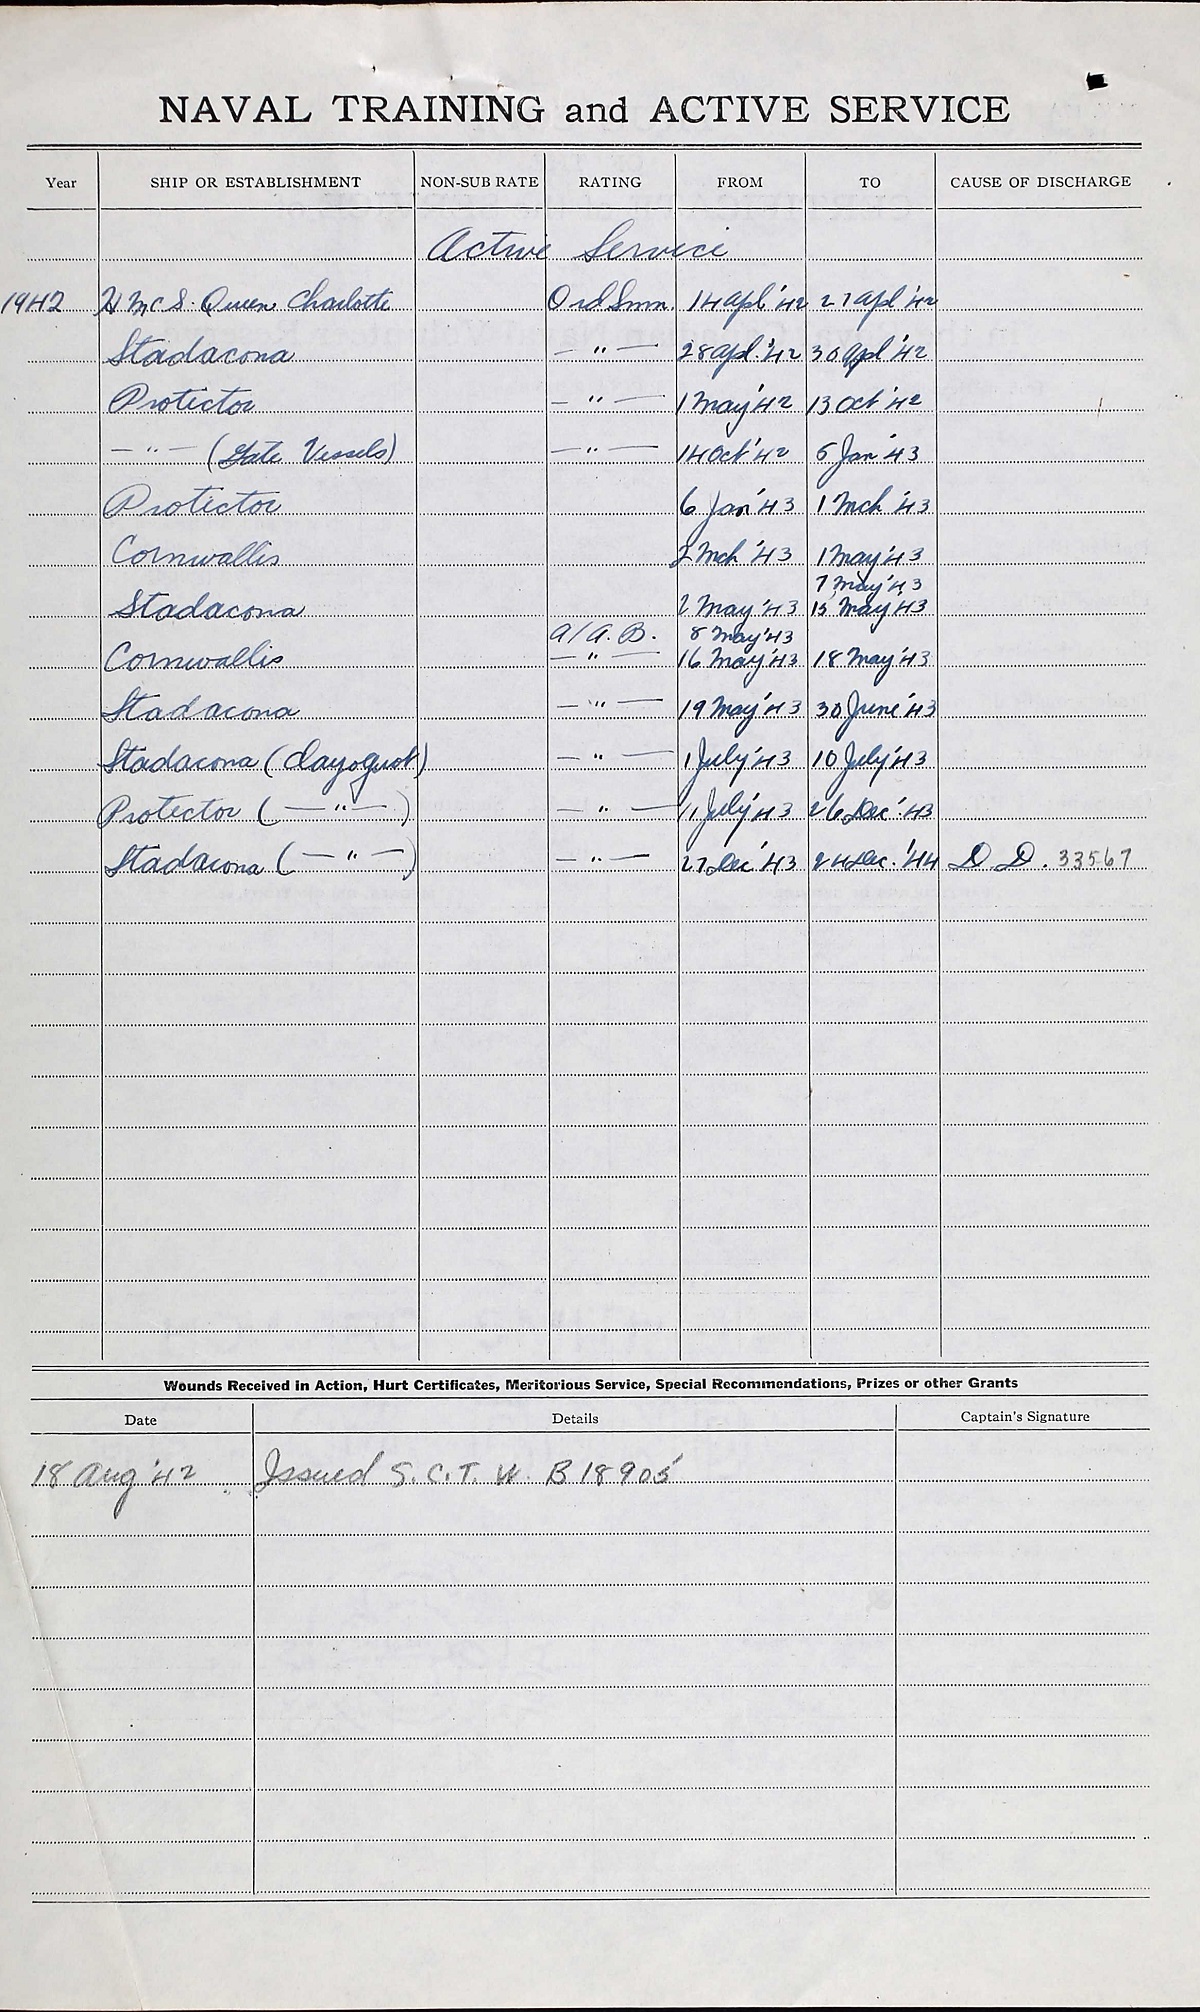 NAVAL TRAINING and ACTIVE SERVICE
Year SHIP OR ESTABLISHMENT NON-SUB RATE RATING FROM TO CAUSE OF DISCHARGE
Active Service
1942 H M C S. Queen Charlotte Ord Smn. 14 Apl '42 27 Apl '42
Stadacona — " — 28 Apl. '42 30 Apl '42
Protector — " — 1 May '42 13 Oct '42
— " — (Gate Vessels) — " — 14 Oct '42 5 Jan '43
Protector 6 Jan '43 1 Mch '43
Cornwallis 2 Mch '43 1 May '43
7 May '43
Stadacona 2 May '43 15 May '43
A/A.B. 8 May '43
Cornwallis — " — 16 May '43 18 May '43
Stadacona — " — 19 May '43 30 June '43
Stadacona (Clayoquot) — " — 1 July '43 10 July '43
Protector (— " —) — " — 11 July '43 26 Dec '43
Stadacona (— " —) — " — 27 Dec '43 24 Dec. '44 D. D. 33567
Wounds Received in Action, Hurt Certificates, Meritorious Service, Special Recommendations, Prizes or other Grants
Date Details Captain's Signature
18 Aug '42 Issued S. C. T. W. B 18905